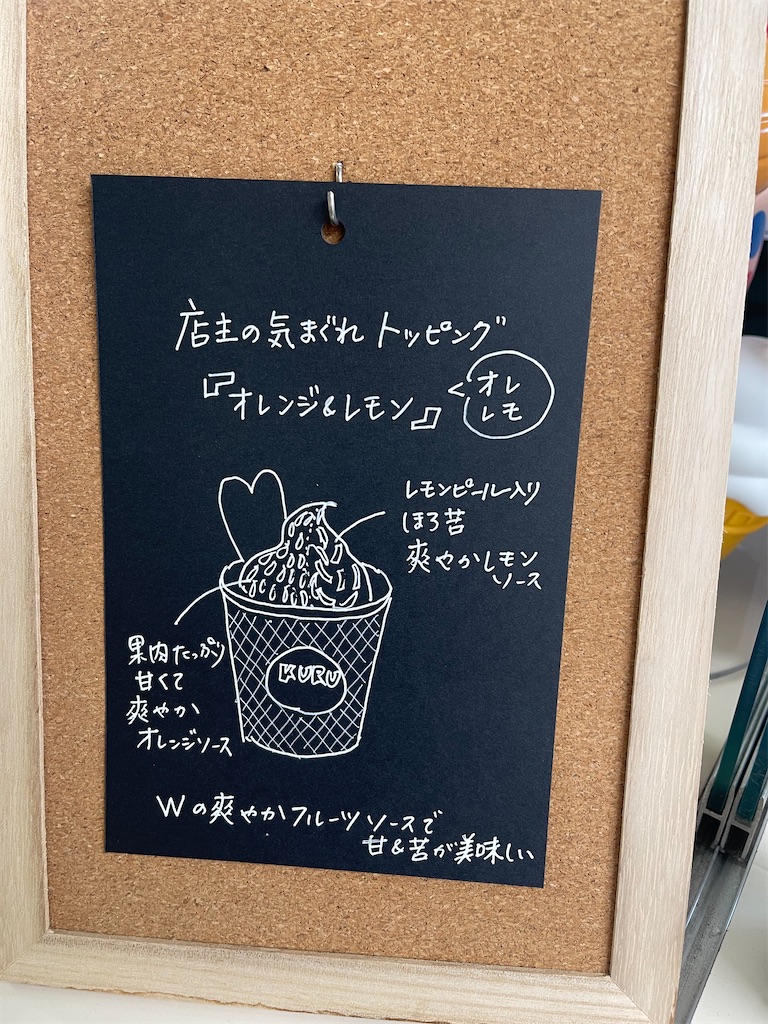 店主の気まぐれトッピング
『オレンジ&レモン』
オレ
レモ
レモンピール入り
ほろ苦
爽やかレモン
ソース
果肉たっぷり
甘くて
爽やか
オレンジソース
KURU
Wの爽やかフルーツソースで
甘&苦が美味しい